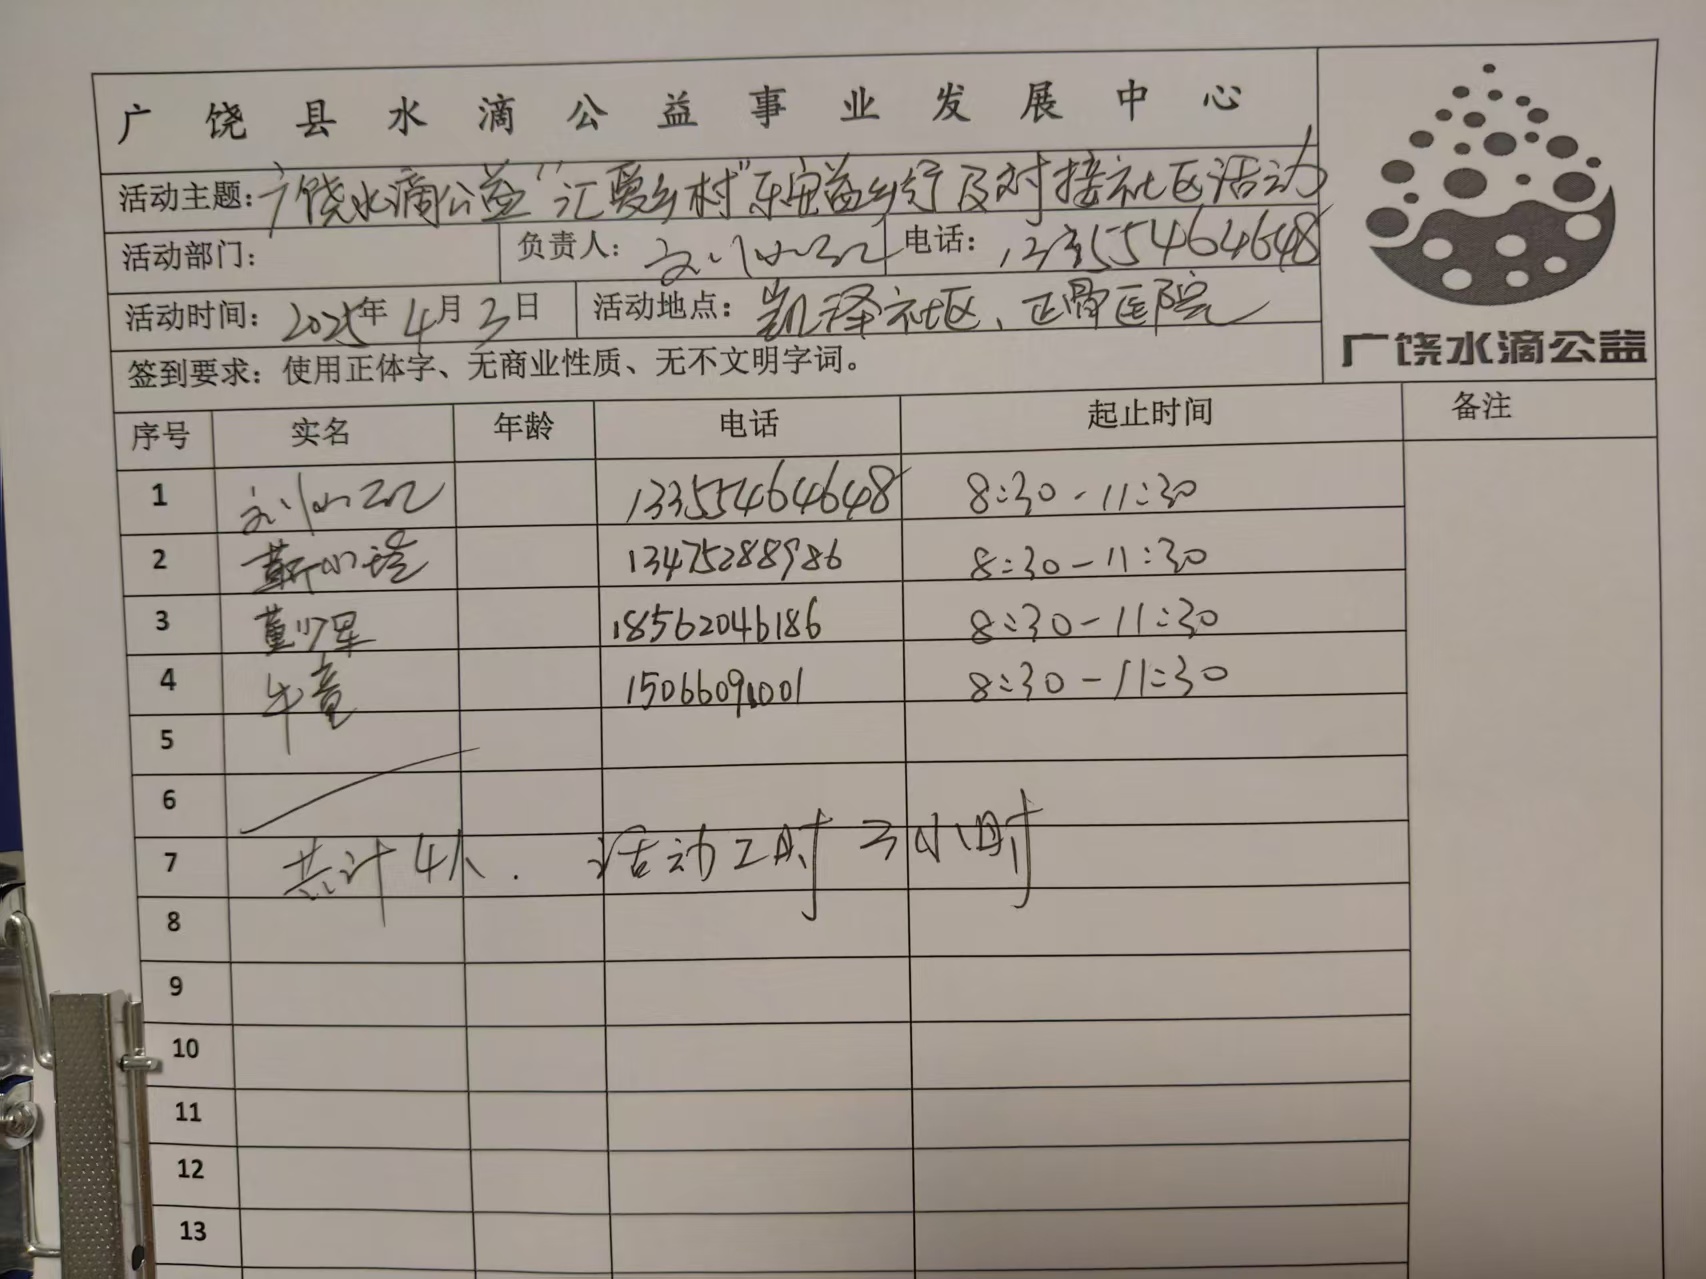 广饶县水滴公益事业发展中心
活动主题:广饶水滴公益“汇爱乡村”东安益乡行及对接社区活动
活动部门: 负责人: 刘 电话: 13355464648
活动时间: 2025年4月3日 活动地点: 凯泽社区、正骨医院
签到要求: 使用正体字、无商业性质、无不文明字词。
广饶水滴公益
序号 实名 年龄 电话 起止时间 备注
1 刘 13355464648 8:30-11:30
2 靳小 13475288986 8:30-11:30
3 董 18562046186 8:30-11:30
4 牛童 15066091001 8:30-11:30
5
6
7 共计4人. 活动工时 3小时
8
9
10
11
12
13